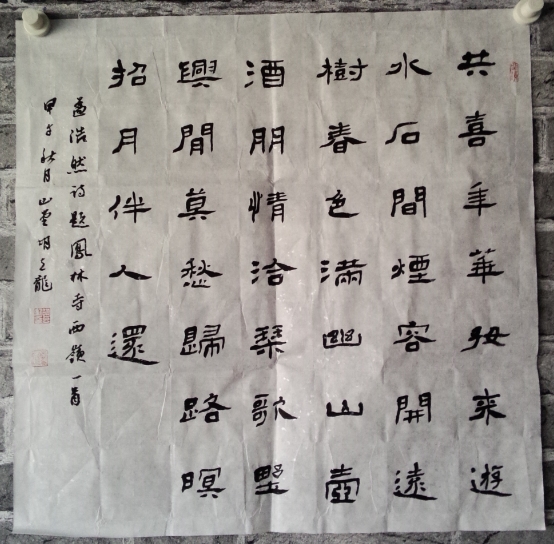 共喜年華好來遊
水石間煙容開遠
樹春色滿幽山壺
酒朋情洽琴歌墅
興閒莫愁歸路暝
招月伴人還
孟浩然诗题鳳林寺西嶺一首
甲午秋月山雲明之龍